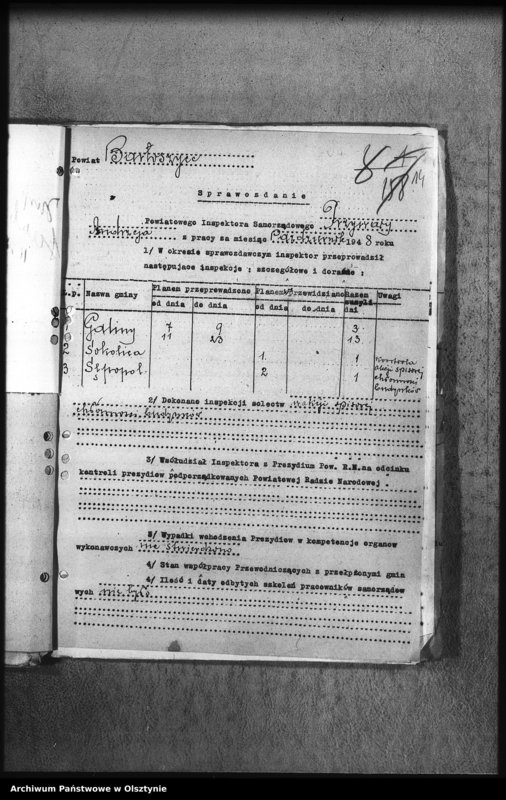 Powiat Bartoszyce
14
Sprawozdanie
Powiatowego Inspektora Samorządowego
Andrzeja
z pracy za miesiąc Październik 1948 roku
1/ W okresie sprawozdawczym inspektor przeprowadził
następujące inspekcje : szczegółowe i doraźne :
L.p. Nazwa gminy Planem przeprowadzono Planem przewidziano Razem Uwagi
od dnia do dnia od dnia do dnia dni
1 Galiny 7 9 3
11 23 13
2 Sokolica 1. 1 Kontrola
akcji spisowej
3 Sępopol. 2 1
budynków
2/ Dokonano inspekcji sołectw
budynków
3/ Współudział Inspektora z Prezydium Pow. R.N.na odcinku
kontroli prezydiow podporządkowanych Powiatowej Radzie Narodowej
3/ Wypadki wchodzenia Prezydiow w kompetencje organow
wykonawczych nie stwierdzono
4/ Stan współpracy Przewodniczących z przełożonymi gmin
4/ Ilość i daty odbytych szkoleń pracowników samorządow
wych nie było
Archiwum Państwowe w Olsztynie